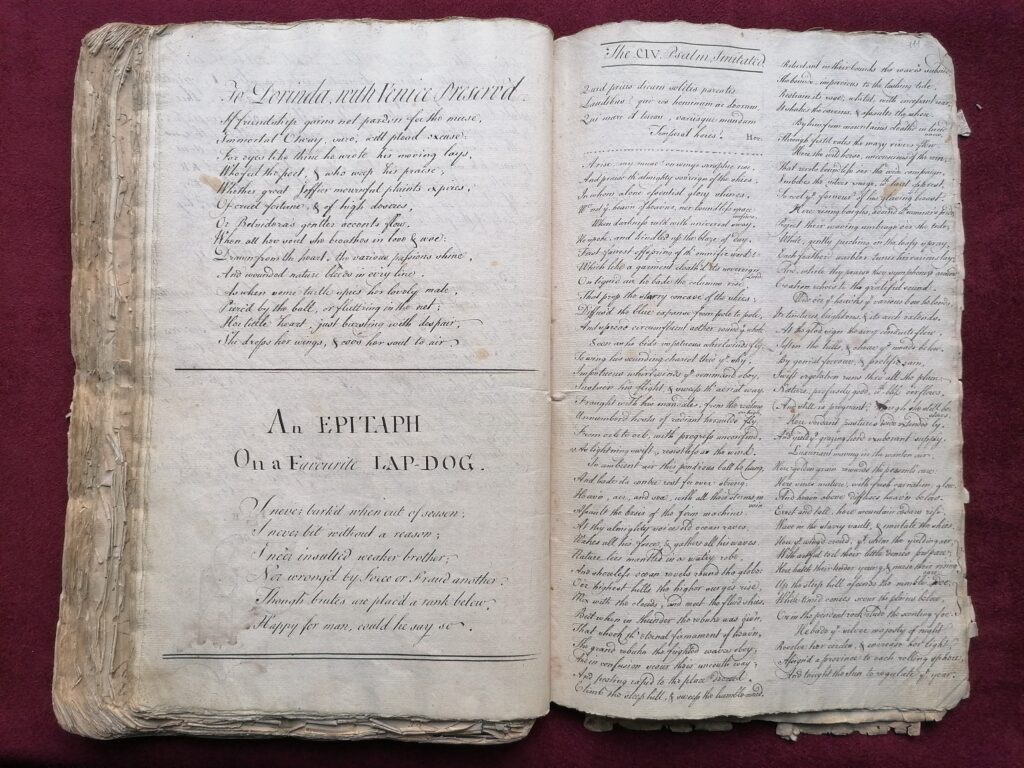 To Dorinda, with Venice Preserv'd.
If friendship gains not pardon for the muse,
Immortal Otway, sure, will plead excuse:
For eyes like thine he wrote his moving lays,
Who feel the poet, & who weep his praise;
Whether great Jaffier mournful plaints express,
Of cruel fortune, & of high distress,
Or Belvidera's gentler accents flow,
When all her soul she breathes in love & woe:
Drawn from the heart, the various passions shine,
And wounded nature bleeds in every line.
As when some turtle spies her lovely mate,
Pierc'd by the ball, or flutt'ring in the net;
Her little heart just bursting with despair,
She droops her wings, & coos her soul to air.
An EPITAPH
On a Favourite LAP-DOG.
I never bark'd when out of season;
I never bit without a reason;
I ne'er insulted weaker brother;
Nor wrong'd by Force or Fraud another;
Though brutes are plac'd a rank below,
Happy for man, could he say so.
The CIV. Psalm Imitated.
Quid prius dicam solitis parentis
Laudibus? qui res hominum ac deorum,
Qui mare et terras, variisque mundum
Temperat horis? Hor.
Arise my muse! on wings seraphic rise,
And praise th' almighty sov'reign of the skies,
In whom alone essential glory shines,
When darkness rul'd with universal sway,
He spoke, and kindled up the blaze of day,
First fairest offspring of th' omnific word!
Which like a garment cloath'd its sovereign
On liquid air he bade the columns rise,
That prop the starry concave of the skies,
Diffus'd the blue expanse from pole to pole,
And spread circumfluent aether round y^e whole.
Soon as he bids impetuous whirlwinds fly,
To wing his sounding chariot thro' y^e sky:
Impetuous whirlwinds y^e command obey,
Sustain his flight, & sweep th' aerial way.
Fraught with his mandates, from the realms
Unnumber'd hosts of radiant heralds fly
From orb to orb, with progress unconfin'd,
As lightning swift, resistless as the wind.
In ambient air this pond'rous ball he hung,
And bade its centre rest for ever strong:
Heav'n, air, and sea, with all their storms, in
vain
Assault the basis of the firm machine
At thy almighty voice old ocean raves,
Wakes all his force, & gathers all his waves
Nature lies mantled in a watry robe,
And shoreless ocean revels round the globe:
O'er highest hills the higher surges rise,
Mix with the clouds, and meet the fluid skies.
But when in thunder the rebuke was given,
That shook th' eternal firmament of heaven,
The grand rebuke th' affrighted waves obey,
And in confusion scour their uncouth way;
And posting rapid to the place decreed,
Reluctant in their bounds the waves subside
The bounds, impervious to the lashing tide,
Restrain its rage; whilst, with incessant roar,
It shakes the caverns, & assaults the shore.
By him from mountains cloath'd in
Through fertil vales the mazy rivers flow.
Here the wild horse, unconscious of the rein,
That revels boundless o'er the wide campaign,
Imbibes the silver surge,
To cool y^e fervour of his glowing breast.
Here rising boughs, adorn'd
Project their waving umbrage o'er the tide;
While, gently perching on the leafy spray,
Each feather'd warbler tunes his various lay:
And, while they praise
Creation echoes to the grateful sound.
Wide o'er y^e heav'ns y^e various bow he bends,
Its tinctures brightens, & its arch extends:
At the glad sign the airy conduits flow,
Soften the hills, & chear y^e meads below:
By genial fervour, & prolific rain,
Swift vegetation cloaths the smiling plain:
Nature, profusely good, with bliss o'erflows,
And still is pregnant, tho' she still
Here verdant pastures wide extended lie,
And yield y^e grazing herd exuberant supply.
Luxuriant waving in the wanton air,
Here golden grain rewards the peasants care:
Here vines mature, with fresh carnation glow,
And heav'n above diffuses heav'n below.
Erect and tall, here mountain cedars rise,
Wave in the starry vault, & emulate the skies.
Here y^e wing'd crowd, y^t skim the yielding air,
With artful toil their little domes prepare;
Here hatch their tender young, & nurse their rising
Up the steep hill ascends the nimble doe,
While timid conies scour the plains below,
Or in the pendent rocks elude the scenting foe.
He bade y^e silver majesty of night
Revolve her circles, & increase her light;
Assign'd a province to each rolling sphere,
And taught the sun to regulate y^e year.